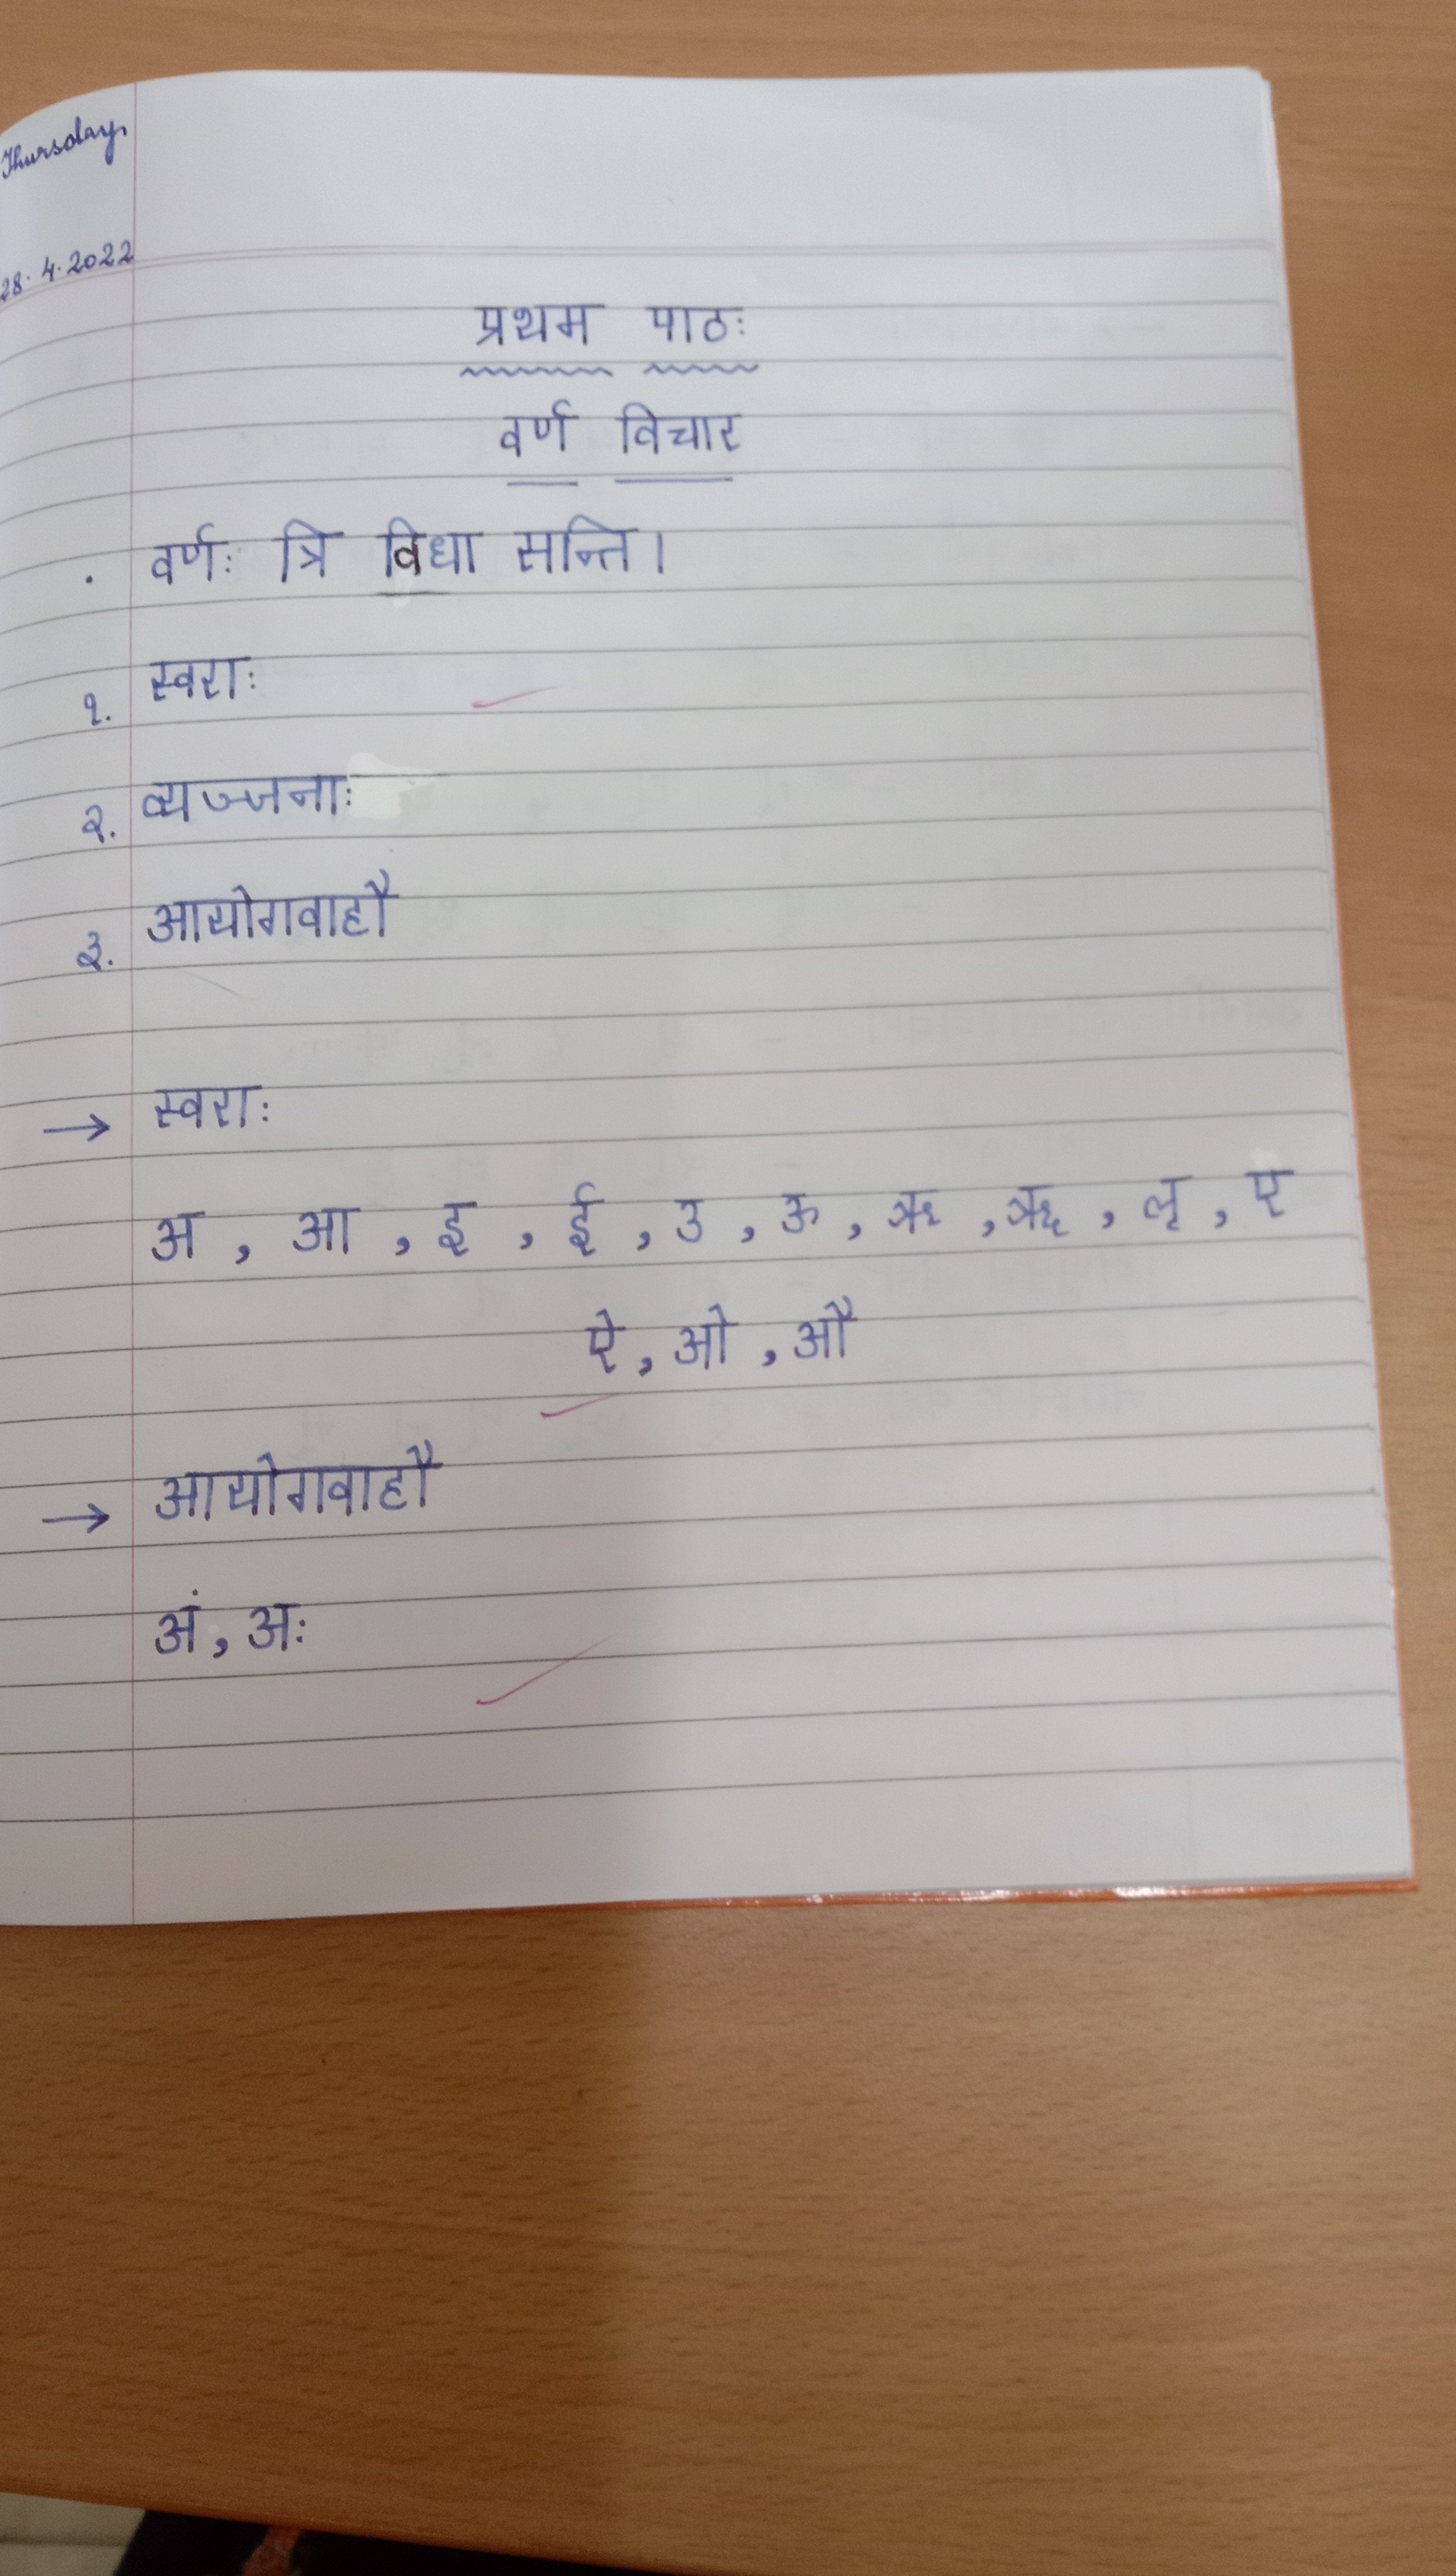 Thursday,
28.4.2022
प्रथम पाठः
वर्ण विचार
. वर्णः त्रि विधा सन्ति।
१. स्वराः
२. व्यञ्जनाः
३. आयोगवाहौ
→ स्वराः
अ , आ , इ , ई , उ , ऊ , ऋ , ॠ , लृ , ए
ऐ , ओ , औ
→ आयोगवाहौ
अं , अः